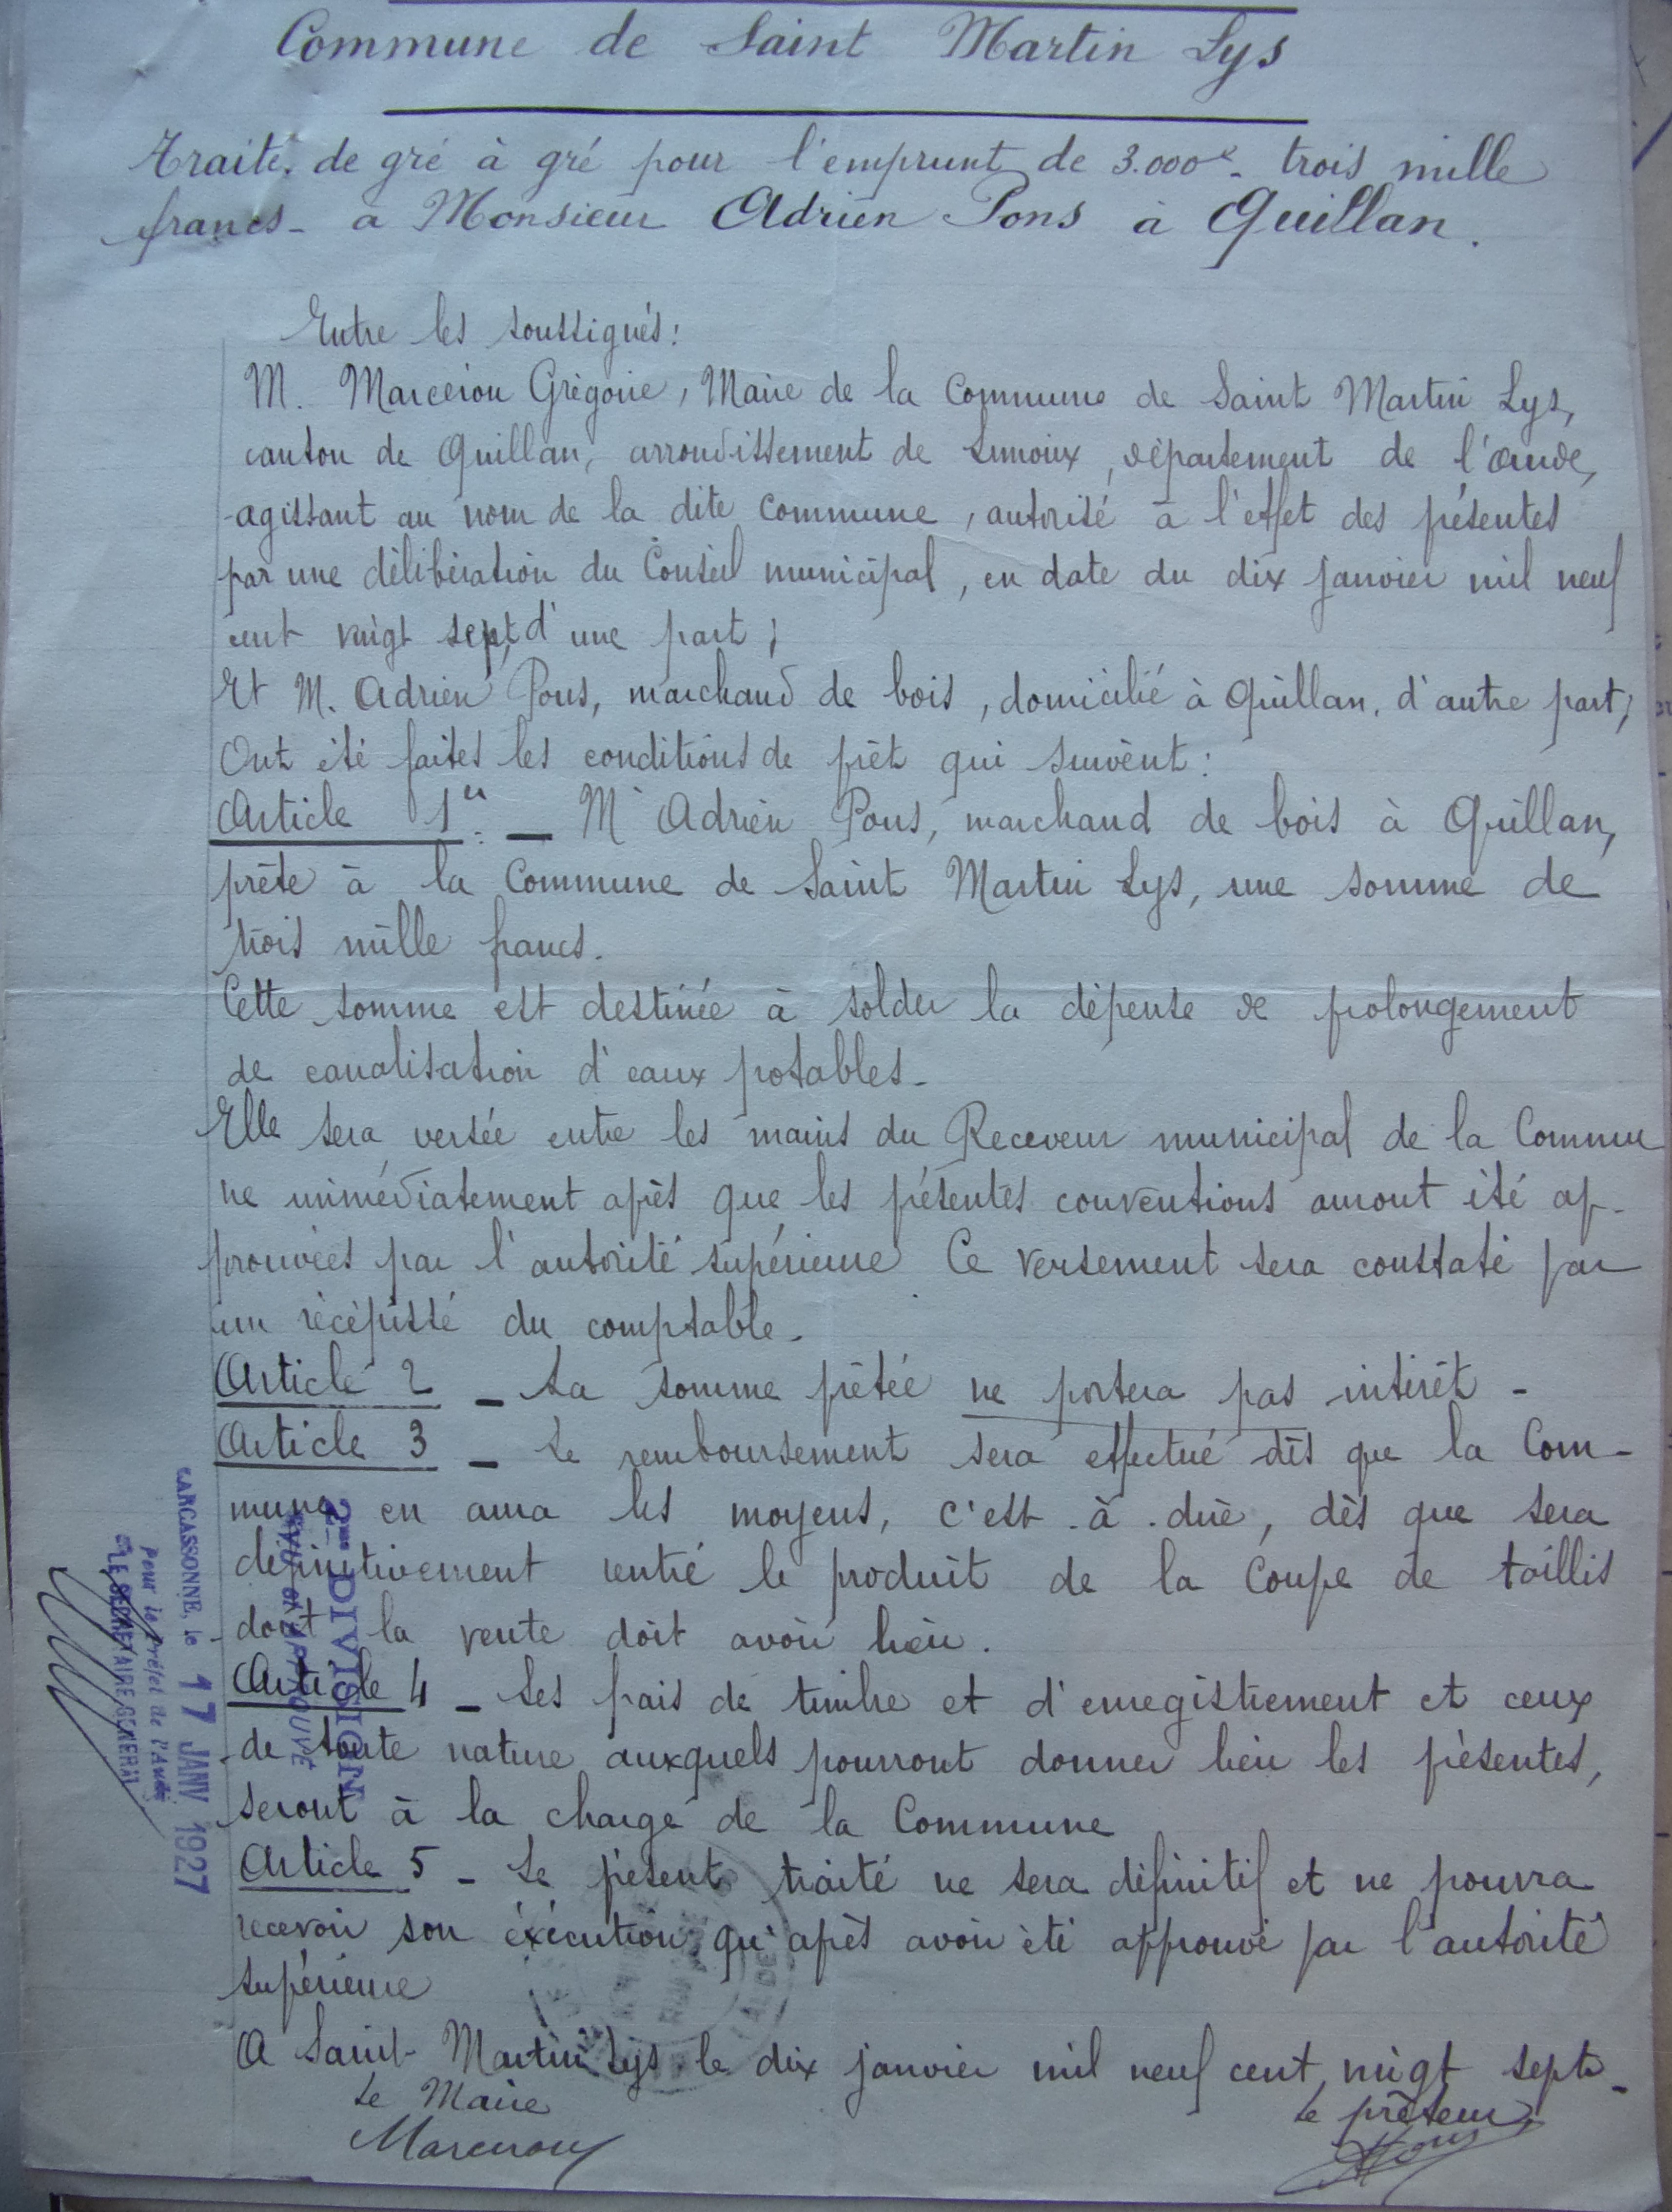 Commune de Saint Martin Lys
Traité de gré à gré pour l'emprunt de 3.000f - trois mille
francs - à Monsieur Adrien Pons à Quillan.
Entre les soussignés :
M. Marceron Grégoire, Maire de la Commune de Saint Martin Lys,
canton de Quillan, arrondissement de Limoux, département de l'Aude,
agissant au nom de la dite commune, autorisé à l'effet des présentes
par une délibération du Conseil municipal, en date du dix janvier mil neuf
cent vingt sept, d'une part ;
Et M. Adrien Pons, marchand de bois, domicilié à Quillan, d'autre part ;
Ont été faites les conditions de prêt qui suivent :
Article 1er. — M Adrien Pons, marchand de bois à Quillan,
prête à la Commune de Saint Martin Lys, une somme de
trois mille francs.
Cette somme est destinée à solder la dépense de prolongement
de canalisation d'eaux potables -
Elle sera versée entre les mains du Receveur municipal de la Commu
ne immédiatement après que les présentes conventions auront été ap-
prouvées par l'autorité supérieure Ce versement sera constaté par
un récépissé du comptable -
Article 2 - La somme prêtée ne portera pas intérêt -
Article 3 - Le remboursement sera effectué dès que la Com-
mune en aura les moyens, c'est-à-dire, dès que sera
définitivement rentré le produit de la Coupe de taillis
dont la vente doit avoir lieu.
Article 4 - Les frais de timbre et d'enregistrement et ceux
de toute nature auxquels pourront donner lieu les présentes,
seront à la charge de la Commune
Article 5 - Le présent traité ne sera définitif et ne pourra
recevoir son éxécution, qu'après avoir été approuvé par l'autorité
supérieure
A Saint Martin Lys le dix janvier mil neuf cent vingt sept -
Le Maire
Marceron
Le prêteur
APons
2me DIVISION
VU et APPROUVÉ
CARCASSONNE, le 17 JANV 1927
Pour le Préfet de l'Aude
LE SECRÉTAIRE GÉNÉRAL